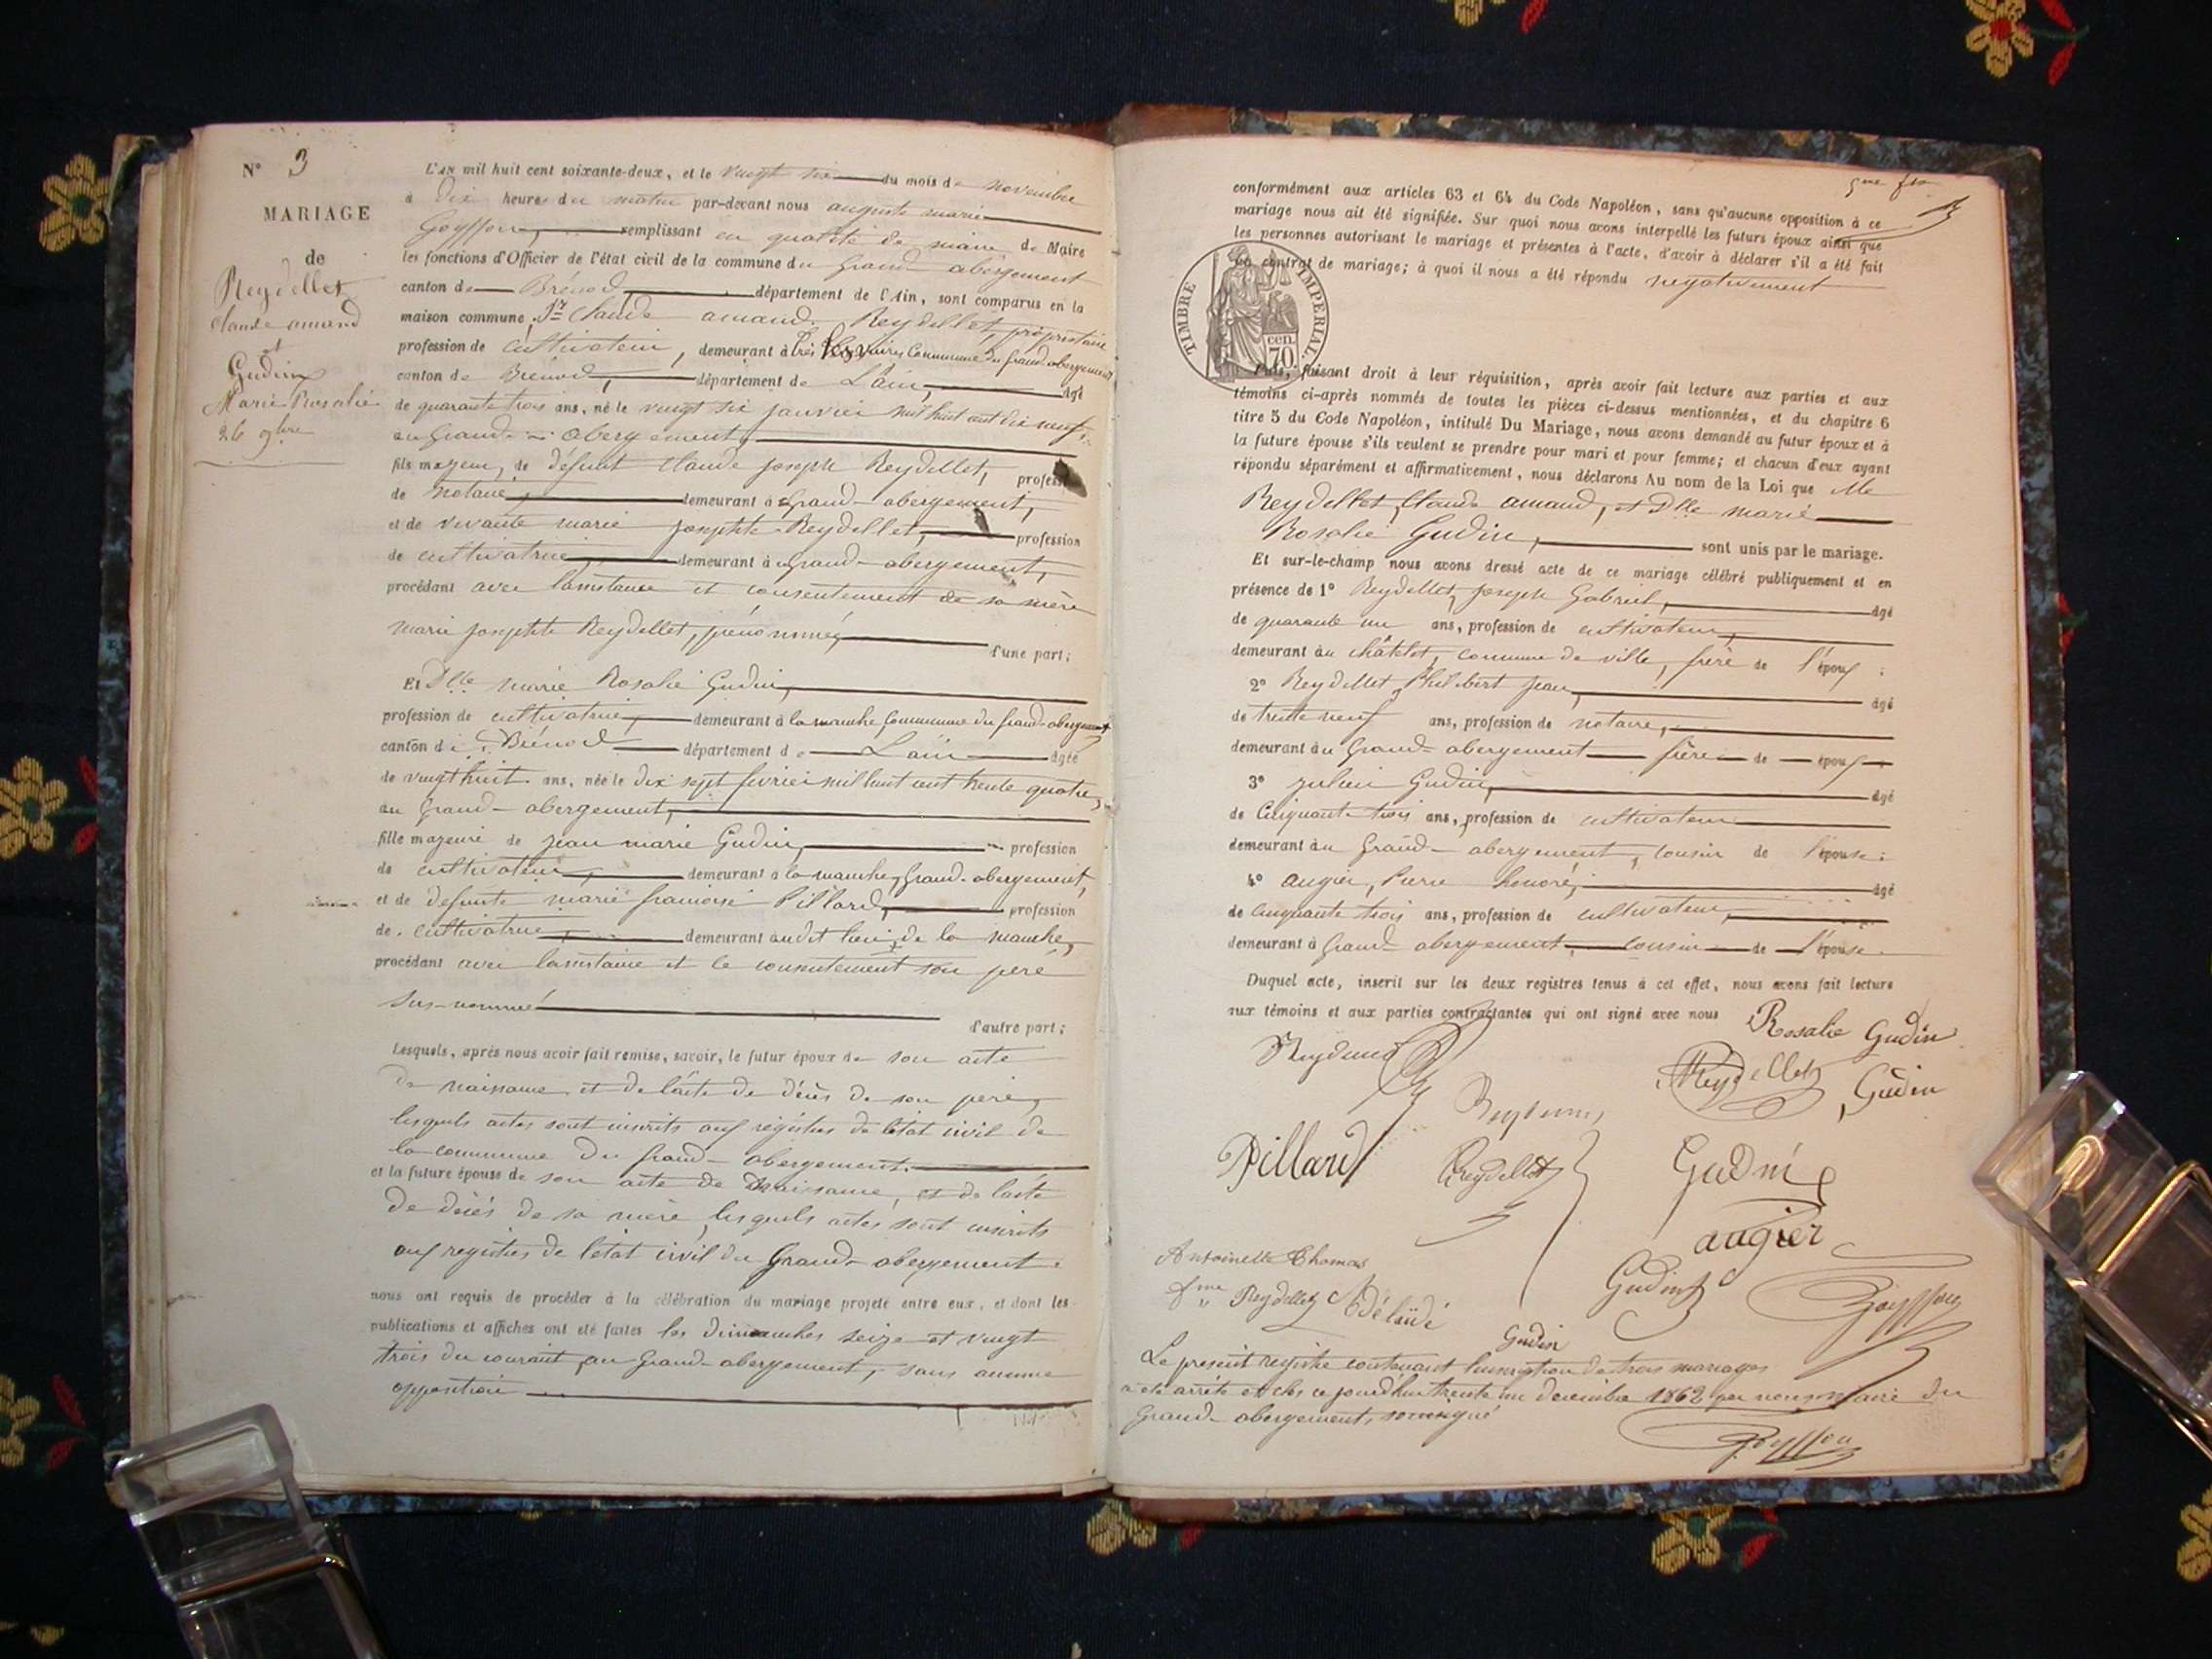 N° 3
MARIAGE
de
Reydellet
Claude amand
et
Gudin
Marie Rosalie
26 9bre
L'AN mil huit cent soixante-deux, et le vingt six du mois de novembre
à dix heures du matin par-devant nous auguste marie
Goyffon, remplissant en qualité de maire de Maire
les fonctions d'Officier de l'état civil de la commune du Grand abergement
canton de Brénod, département de l'Ain, sont comparus en la
maison commune, 1° Sr Claude amand Reydellet, propriétaire
profession de cultivateur, demeurant à Commune du Grand-abergement
canton de Brénod, département de L'ain, âgé
de quarante trois ans, né le vingt six janvier mil huit cent dix neuf,
au Grand-abergement,
fils majeur, de défunt Claude joseph Reydellet, profession
de notaire, demeurant à Grand-abergement,
et de vivante marie josephte Reydellet, profession
de cultivatrice, demeurant à Grand-abergement,
procédant avec l'assistance et consentement de sa mère
marie josephte Reydellet, prénommée, d'une part;
Et Dlle marie Rosalie Gudin,
profession de cultivatrice, demeurant à la manche, Commune du Grand-abergement
canton de Brénod département de L'ain âgée
de vingt huit ans, née le dix sept fevrier mil huit cent trente quatre,
au Grand-abergement,
fille majeure de jean marie Gudin, profession
de cultivateur, demeurant à la manche, Grand-abergement,
et de defunte marie françoise Pillard, profession
de cultivatrice, demeurant audit lieu de la manche,
procédant avec l'assistance et le consentement son père
sus-nommé d'autre part;
Lesquels, après nous avoir fait remise, savoir, le futur époux de son acte
de naissance et de l'acte de décès de son père,
lesquels actes sont inscrits aux régistres de l'état civil de
la commune du Grand-abergement.
et la future épouse de son acte de naissance, et de l'acte
de décès de sa mère, lesquels actes sont inscrits
aux registres de l'état civil du Grand-abergement.
nous ont requis de procéder à la célébration du mariage projeté entre eux, et dont les
publications et affiches ont été faites les dimanches seize et vingt
trois du courant, au Grand-abergement, sans aucune
opposition
conformément aux articles 63 et 64 du Code Napoléon, sans qu'aucune opposition à ce
mariage nous ait été signifiée. Sur quoi nous avons interpellé les futurs époux ainsi que
les personnes autorisant le mariage et présentes à l'acte, d'avoir à déclarer s'il a été fait
un contrat de mariage; à quoi il nous a été répondu négativement
TIMBRE IMPERIAL.
70 cen.
Puis, faisant droit à leur réquisition, après avoir fait lecture aux parties et aux
témoins ci-après nommés de toutes les pièces ci-dessus mentionnées, et du chapitre 6
titre 5 du Code Napoléon, intitulé Du Mariage, nous avons demandé au futur époux et à
la future épouse s'ils veulent se prendre pour mari et pour femme; et chacun d'eux ayant
répondu séparément et affirmativement, nous déclarons Au nom de la Loi que Me
Reydellet, Claude amand, et Dlle marie
Rosalie Gudin, sont unis par le mariage.
Et sur-le-champ nous avons dressé acte de ce mariage célébré publiquement et en
présence de 1° Reydellet, joseph Gabriel, âgé
de quarante un ans, profession de cultivateur,
demeurant au châtelet, commune de ville, frère de l'époux;
2° Reydellet, Philibert jean, âgé
de trente neuf ans, profession de notaire,
demeurant au Grand-abergement frère de époux
3° julien Gudin, âgé
de Cinquante trois ans, profession de cultivateur
demeurant au Grand-abergement, cousin de l'épouse;
4° augier, Pierre honoré, âgé
de Cinquante trois ans, profession de cultivateur,
demeurant à Grand abergement, cousin de l'épouse.
Duquel acte, inscrit sur les deux registres tenus à cet effet, nous avons fait lecture
aux témoins et aux parties contractantes qui ont signé avec nous
Rosalie Gudin
Reydellet
Gudin
Pillard
Reydellet
Gudin
augier
Antoinette Thomas
fme Reydellet
Gudin
Goyffon
Gudin
Le présent registre contenant l'inscription de trois mariages
a été arrêté et clos ce jourd'hui trente un decembre 1862 par nous maire du
Grand-abergement, soussigné
Goyffon